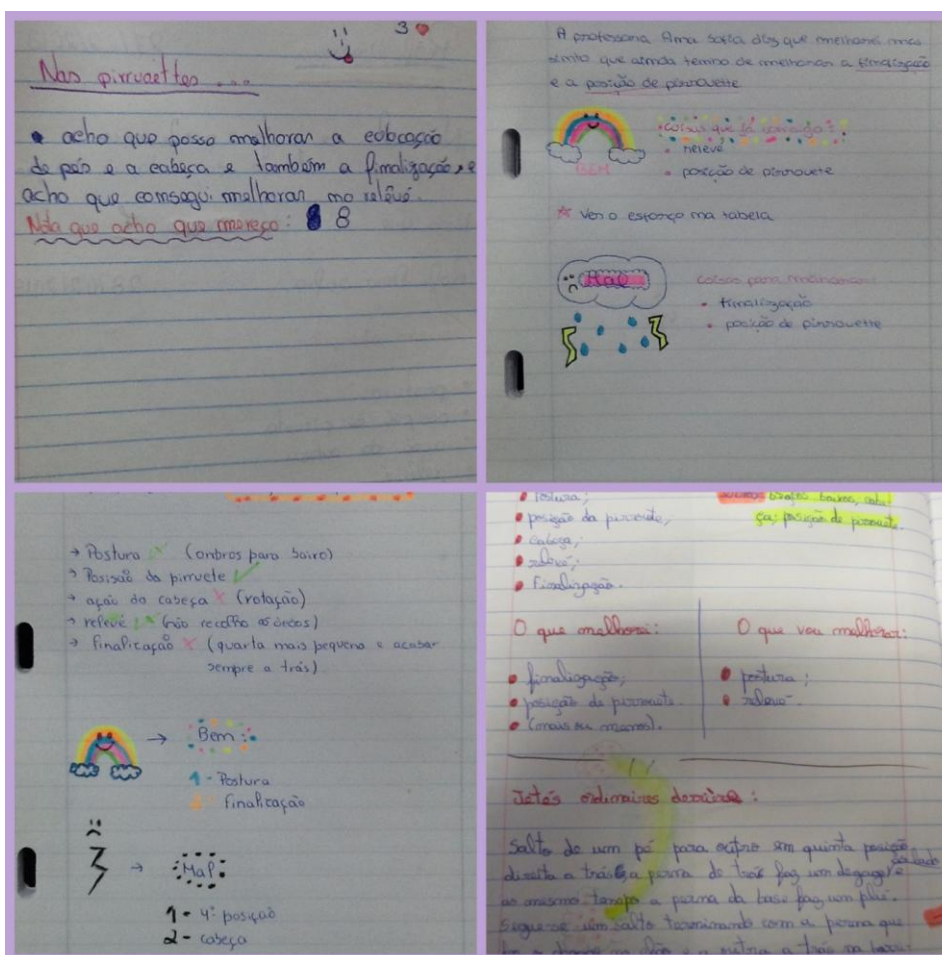 3
Nas pirruettes ...
• acho que posso melhorar a colocação
de pés e a cabeça e também a finalização, e
acho que consegui melhorar no relevé.
Nota que acho que mereço: 8
A professora Ana Sofia diz que melhorei mas
sinto que ainda tenho de melhorar a finalização
e a posição de pirrouette
Coisas que já consigo:
• relevé
BEM
• posição de pirrouete
Ver o esforço na tabela
Mao
Coisas para melhorar:
• finalização
• posição de pirrouette
→ Postura (ombros para baixo)
→ Posisão da pirruete
→ ação da cabeça x (rotação)
→ relevé (não recolho os dedos)
→ finalização x (quarta mais pequena e acabar
sempre a trás)
→ Bem
1 - Postura
2 - finalização
→ Mal
1 - 4ª posição
2 - cabeça
• Postura;
• posição da pirouete;
• cabeça;
• relevé;
• finalização.
braços baixos, cabe
ça; posição de pirouete.
O que melhorei:
• finalização;
• posição de pirouete.
• (mais ou menos).
O que vou melhorar:
• postura;
• relevé.
Jetés ordinaires derrière:
Salto de um pé para outro em quinta posição
direita a trás, a perna de trás faz um degagé
ao mesmo tempo a perna da base faz um plié.
Segue-se um salto terminando com a perna que